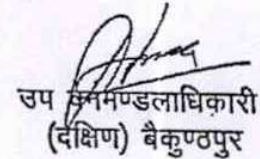 उप वनमण्डलाधिकारी
(दक्षिण) बैकुण्ठपुर